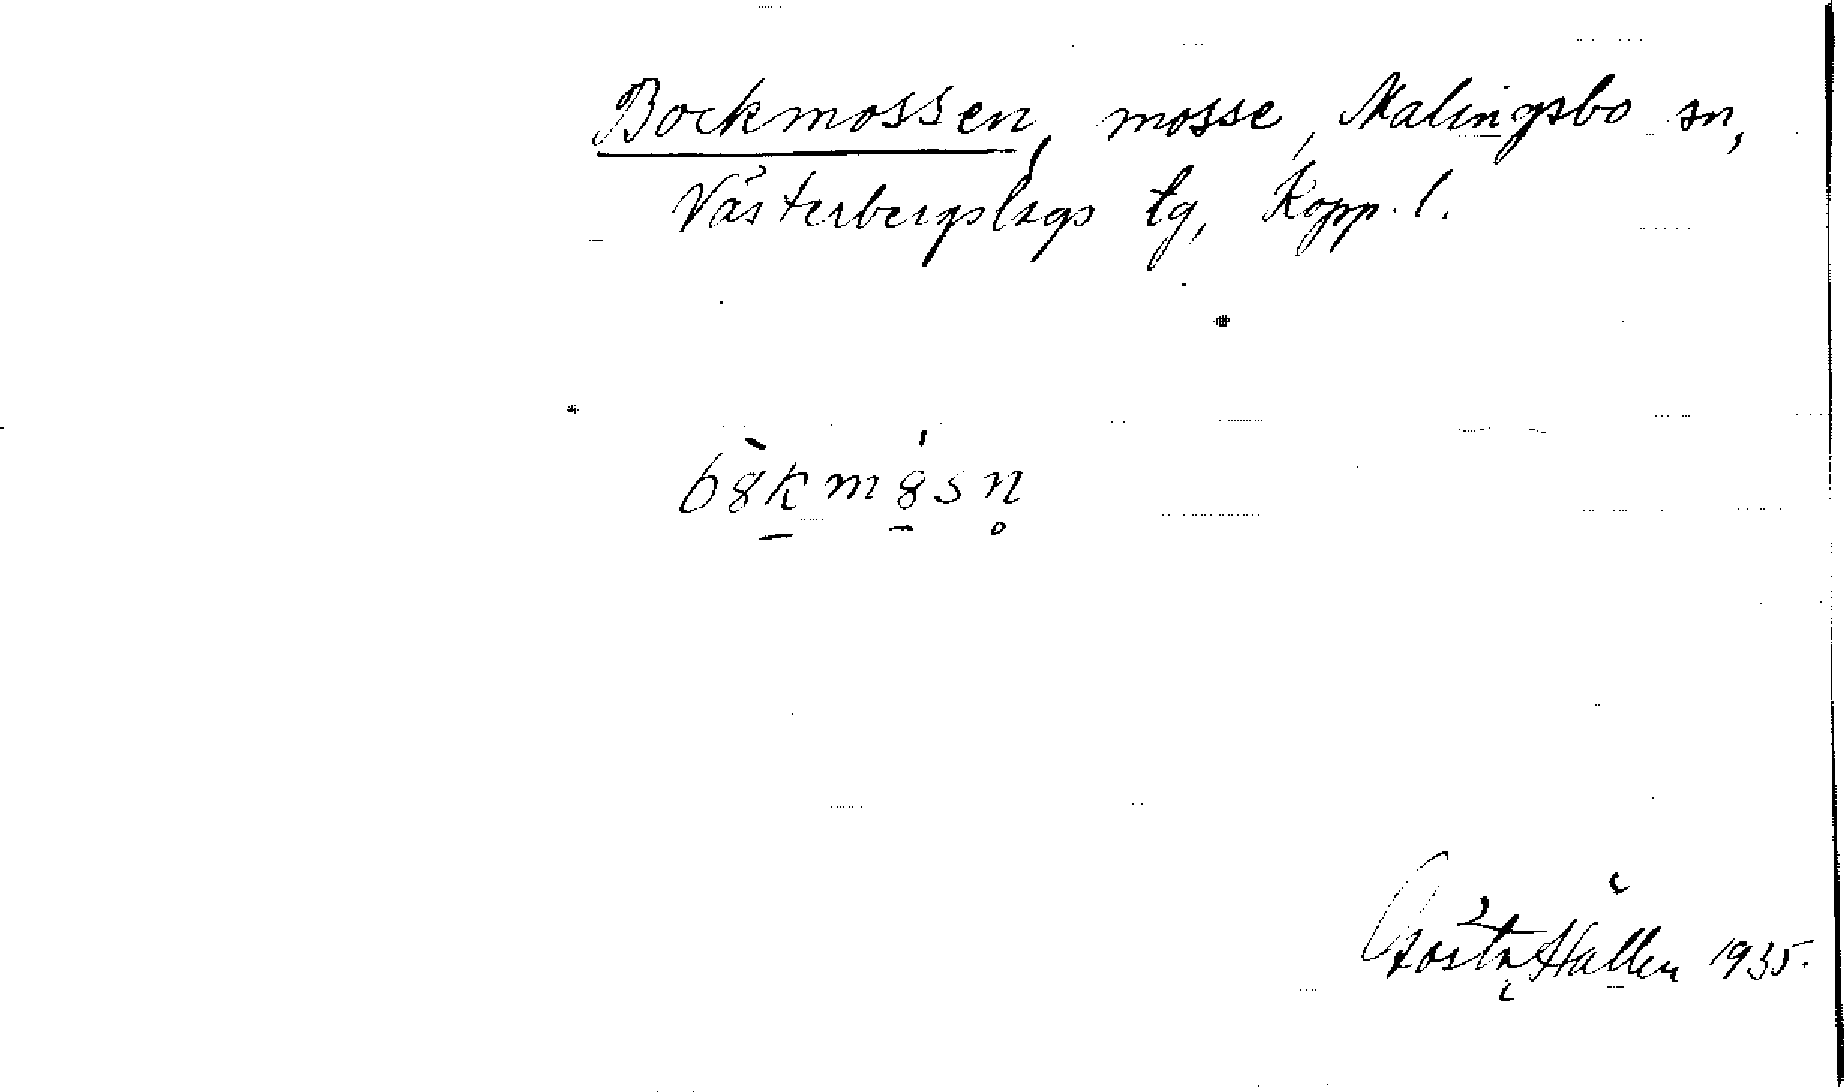 Bockmossen, mosse, Malingsbo sn,
Västerbergslags tg, Kopp. l.
bȣ̀kmȣ́sn̥
Gösta Hallén 1935.